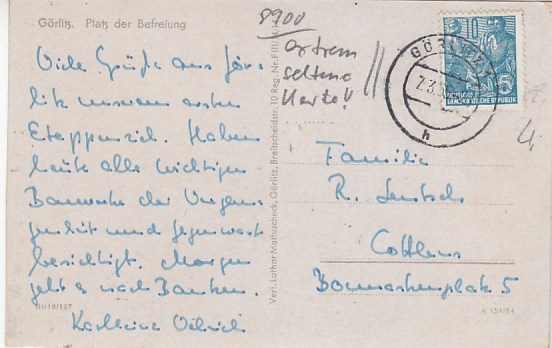 Görlitz. Platz der Befreiung
8900
extrem
seltene
Karte!!
GÖRLITZ 1
7.3.5
h
10
5
DEUTSCHE
DEMOKRATISCHE REPUBLIK
Viele Grüße aus Gör-
litz unserem ersten
Etappenziel. Haben
heute alle wichtigen
Bauwerke der Vergan-
genheit und Gegenwart
besichtigt. Morgen
geht es nach Bautzen.
Familie
R.
Cottbus
Bonnaskenplatz 5
Verl. Lothar Mattuscheck, Görlitz, Breitscheidstr. 10 Reg. Nr. F III/
III/18/197
A 151/54